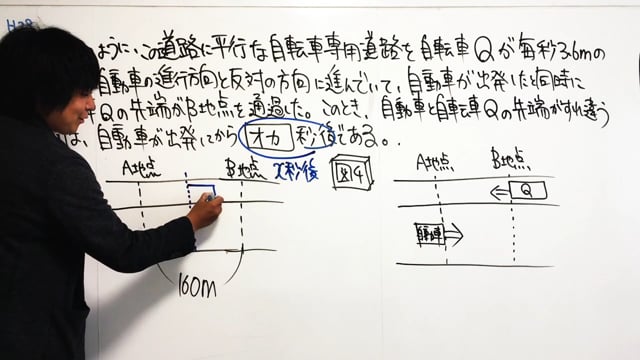 H28
ように、この道路に平行な自転車専用道路を自転車Qが毎秒3.6mの
自動車の進行方向と反対の方向に進んでいて、自動車が出発したと同時に
Qの先端がB地点を通過した。このとき、自動車と自転車Qの先端がすれ違う
は、自動車が出発してから オカ 秒後である。
A地点 B地点 x秒後 図4 A地点 B地点
Q
自動車
160m